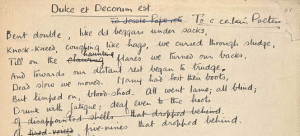 Dulce et Decorum est.
To Jessie Pope etc To a certain Poetess
Bent double, like old beggars under sacks,
Knock-kneed, coughing like hags, we cursed through sludge,
Till on the clawing haunting flares we turned our backs,
And towards our distant rest began to trudge.
Dead slow we moved. Many had lost their boots,
But limped on, blood-shod. All went lame; all blind;
Drunk with fatigue; deaf even to the hoots
Of disappointed shells that dropped behind.
five-nines that dropped behind.